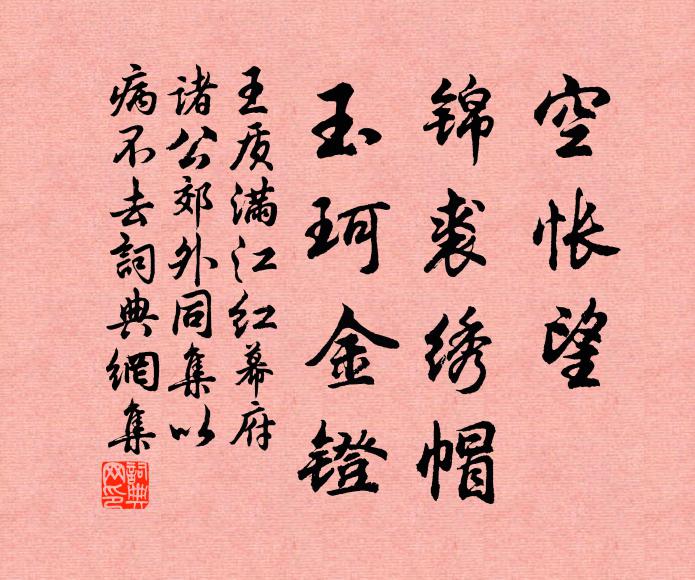 空怅望
锦裘绣帽
玉珂金镫
王质满江红幕府
诸公郊外同集以
病不去詞典網集
詞典网印